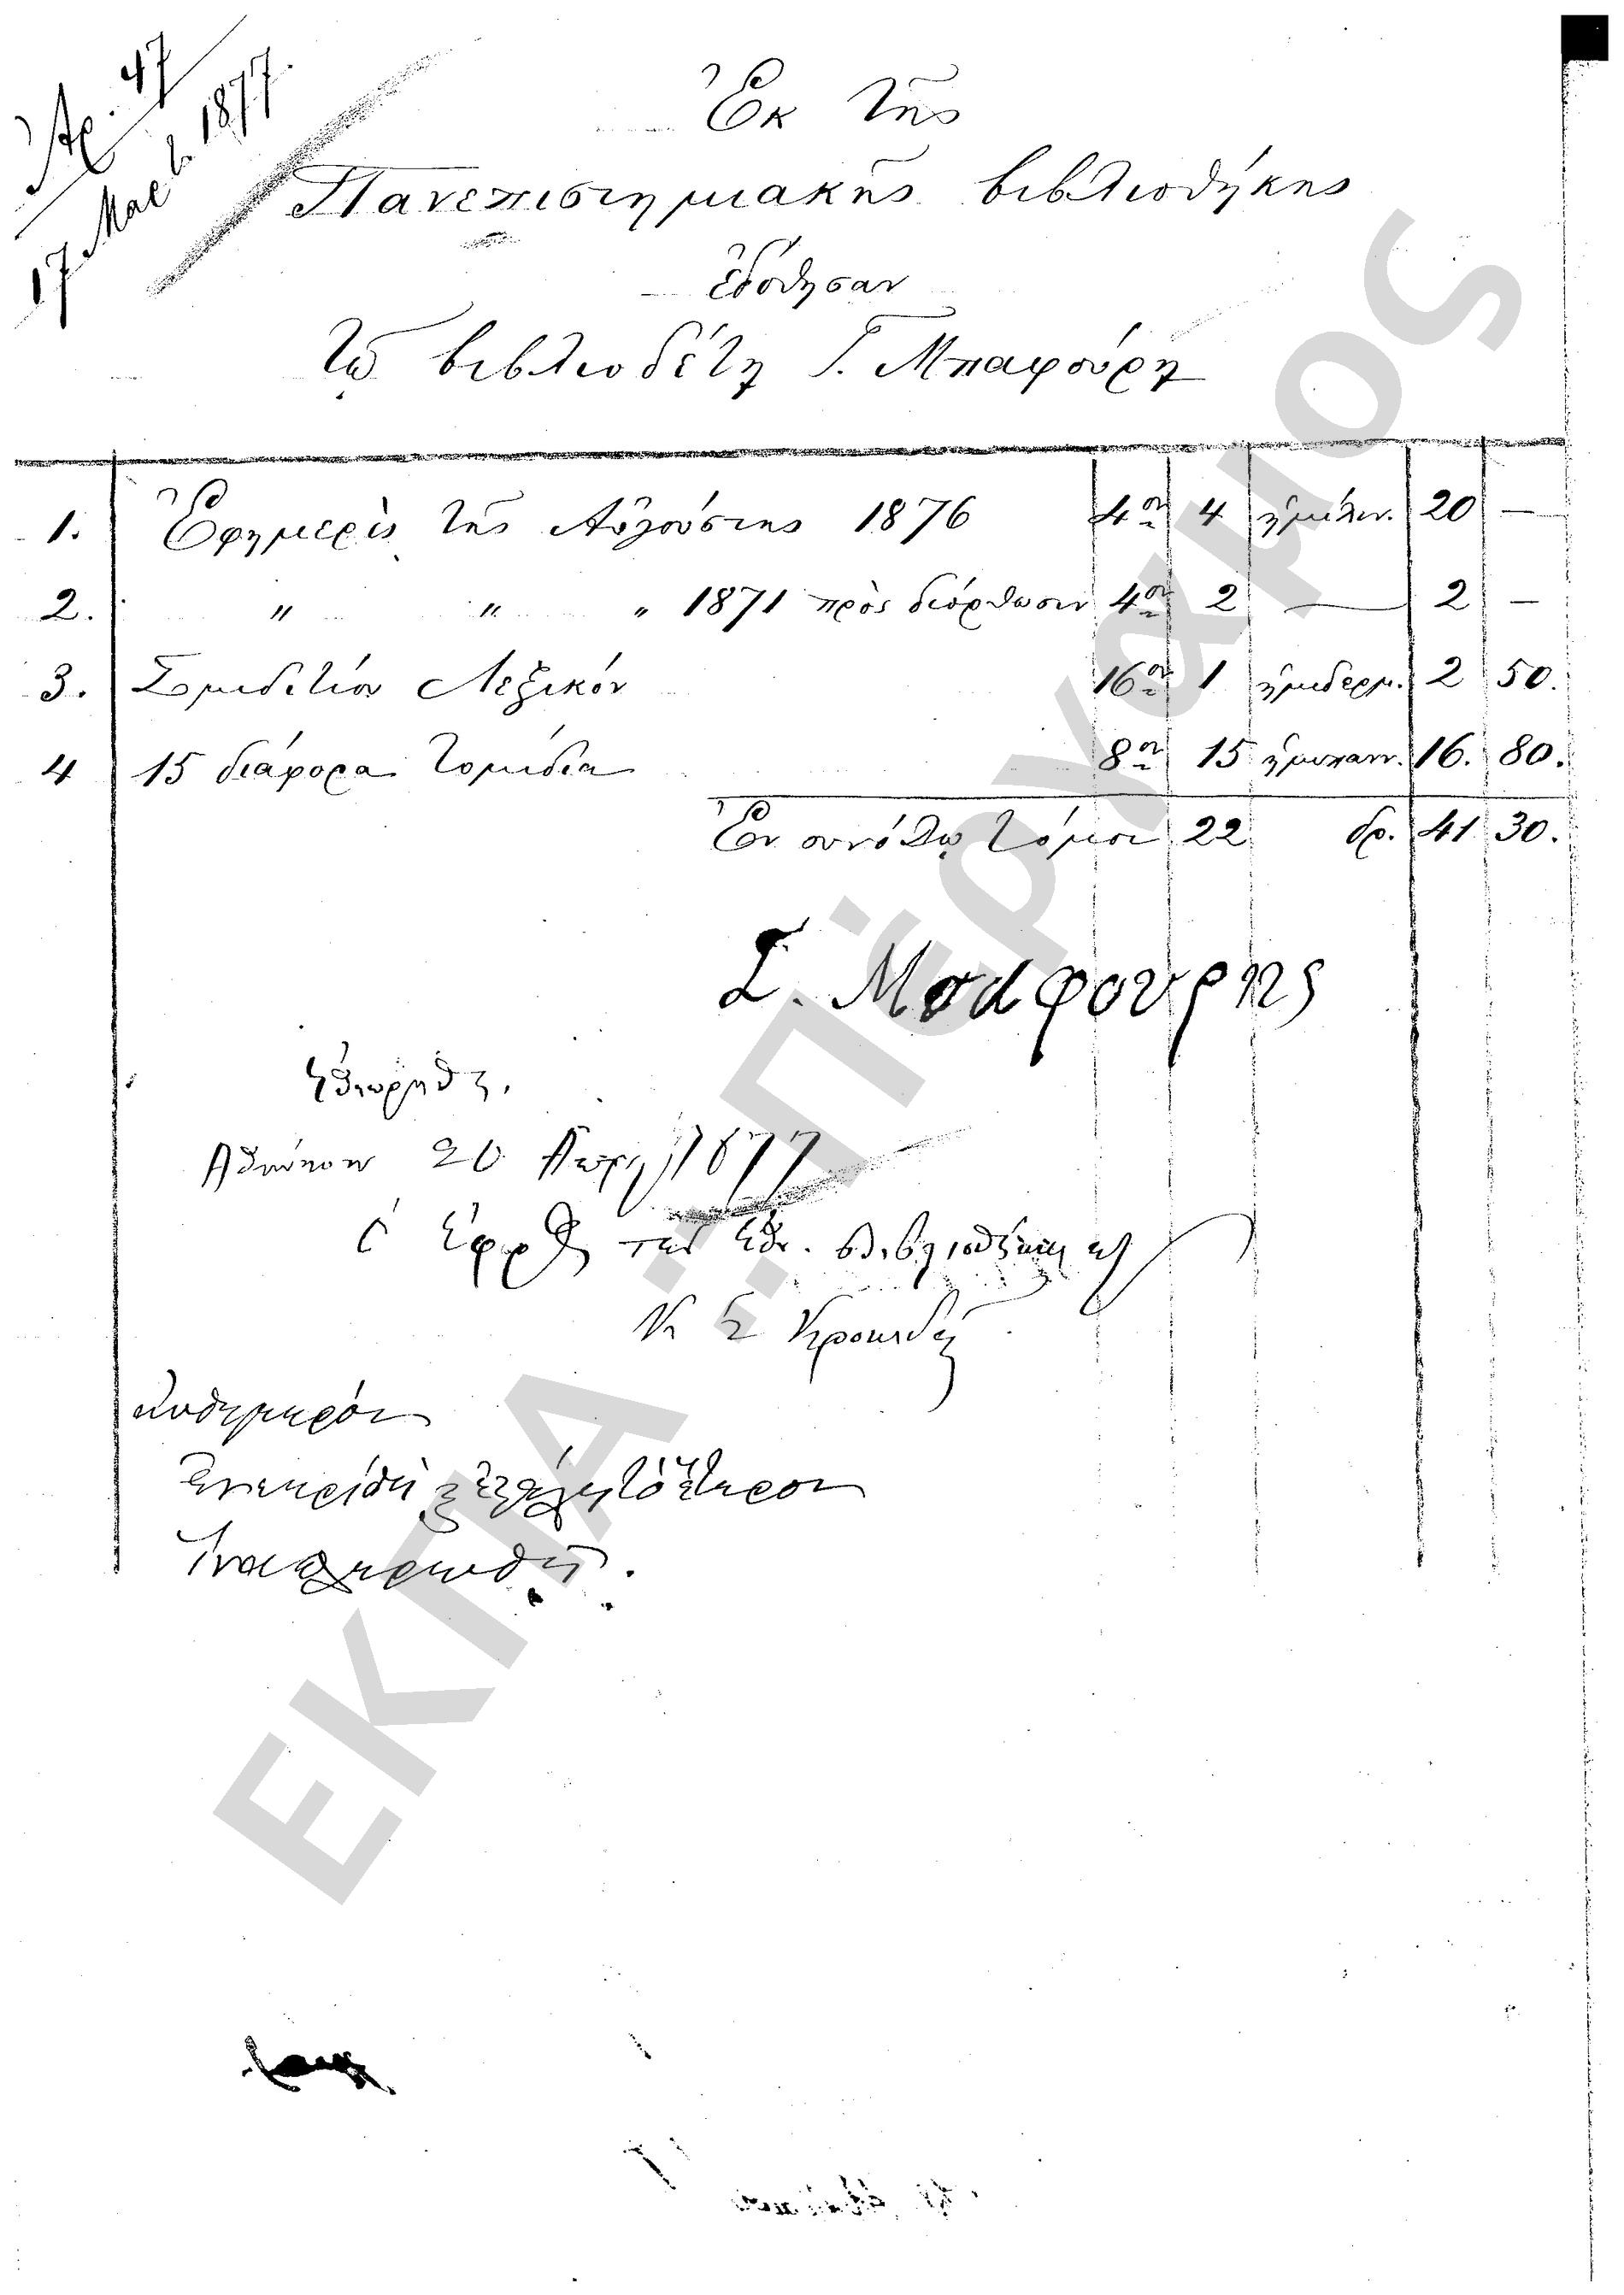 Ἀρ. 47
17 Μαΐ 1877.
Ἐκ τῆς
Πανεπιστημιακῆς βιβλιοθήκης
ἐδόθησαν
τῷ βιβλιοδέτῃ Ι. Μπαφούρῃ
1. Ἐφημερὶς τῆς Αὐγούστης 1876 4ον 4 ἡμίλιν. 20 —
2. " " " 1871 πρὸς διόρθωσιν 4ον 2 — 2 —
3. Σμιδιτίου Λεξικόν 16ον 1 ἡμιδερμ. 2 50.
4 15 διάφορα τομίδια 8ον 15 ἡμιπαν. 16. 80.
Ἐν συνόλῳ τόμοι 22 δρ. 41 30.
Ι. Μπαφουρης
Ἐθεωρήθη.
Ἀθήνησιν 20 Ἀπρ 1877
ὁ Ἔφορος τῆς Ἐθν. βιβλιοθήκης
ΕΚΠΑ "Πέργαμος